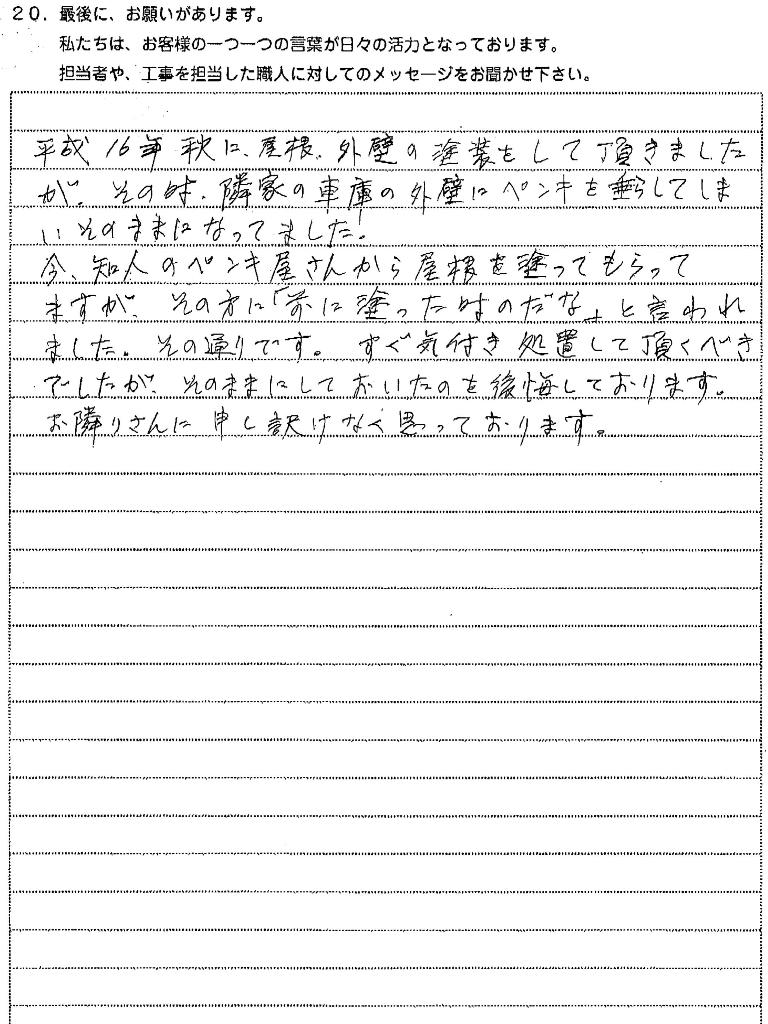 20．最後に、お願いがあります。
私たちは、お客様の一つ一つの言葉が日々の活力となっております。
担当者や、工事を担当した職人に対してのメッセージをお聞かせ下さい。
平成16年秋に、屋根、外壁の塗装をして頂きました
が、その時、隣家の車庫の外壁にペンキを垂らしてしま
いそのままになってました！
今、知人のペンキ屋さんから屋根を塗ってもらって
ますが、その方に「前に塗った時のだな」と言われ
ました。その通りです。すぐ気付き処置して頂くべき
でしたが、そのままにしておいたのを後悔しております。
お隣りさんに申し訳けなく思っております。